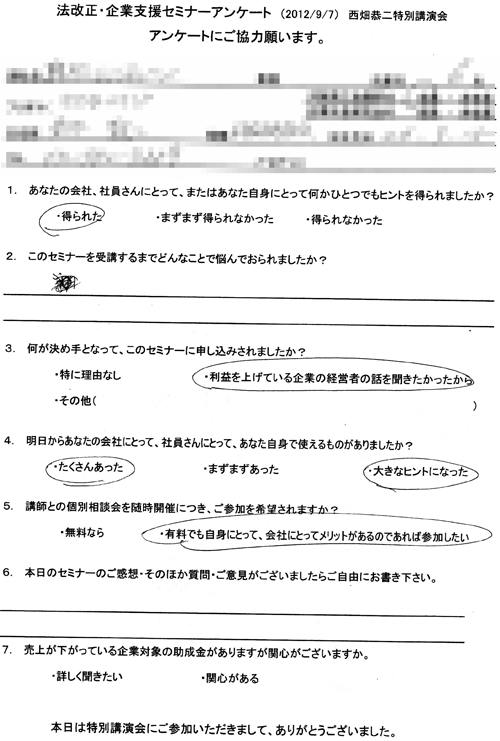 法改正・企業支援セミナーアンケート （2012/9/7） 西畑恭二特別講演会
アンケートにご協力願います。
1. あなたの会社、社員さんにとって、またはあなた自身にとって何かひとつでもヒントを得られましたか？
・得られた ・まずまず得られなかった ・得られなかった
2. このセミナーを受講するまでどんなことで悩んでおられましたか？
3. 何が決め手となって、このセミナーに申し込みされましたか？
・特に理由なし ・利益を上げている企業の経営者の話を聞きたかったから
・その他( )
4. 明日からあなたの会社にとって、社員さんにとって、あなた自身で使えるものがありましたか？
・たくさんあった ・まずまずあった ・大きなヒントになった
5. 講師との個別相談会を随時開催につき、ご参加を希望されますか？
・無料なら ・有料でも自身にとって、会社にとってメリットがあるのであれば参加したい
6. 本日のセミナーのご感想・そのほか質問・ご意見がございましたらご自由にお書き下さい。
7. 売上が下がっている企業対象の助成金がありますが関心がございますか。
・詳しく聞きたい ・関心がある
本日は特別講演会にご参加いただきまして、ありがとうございました。